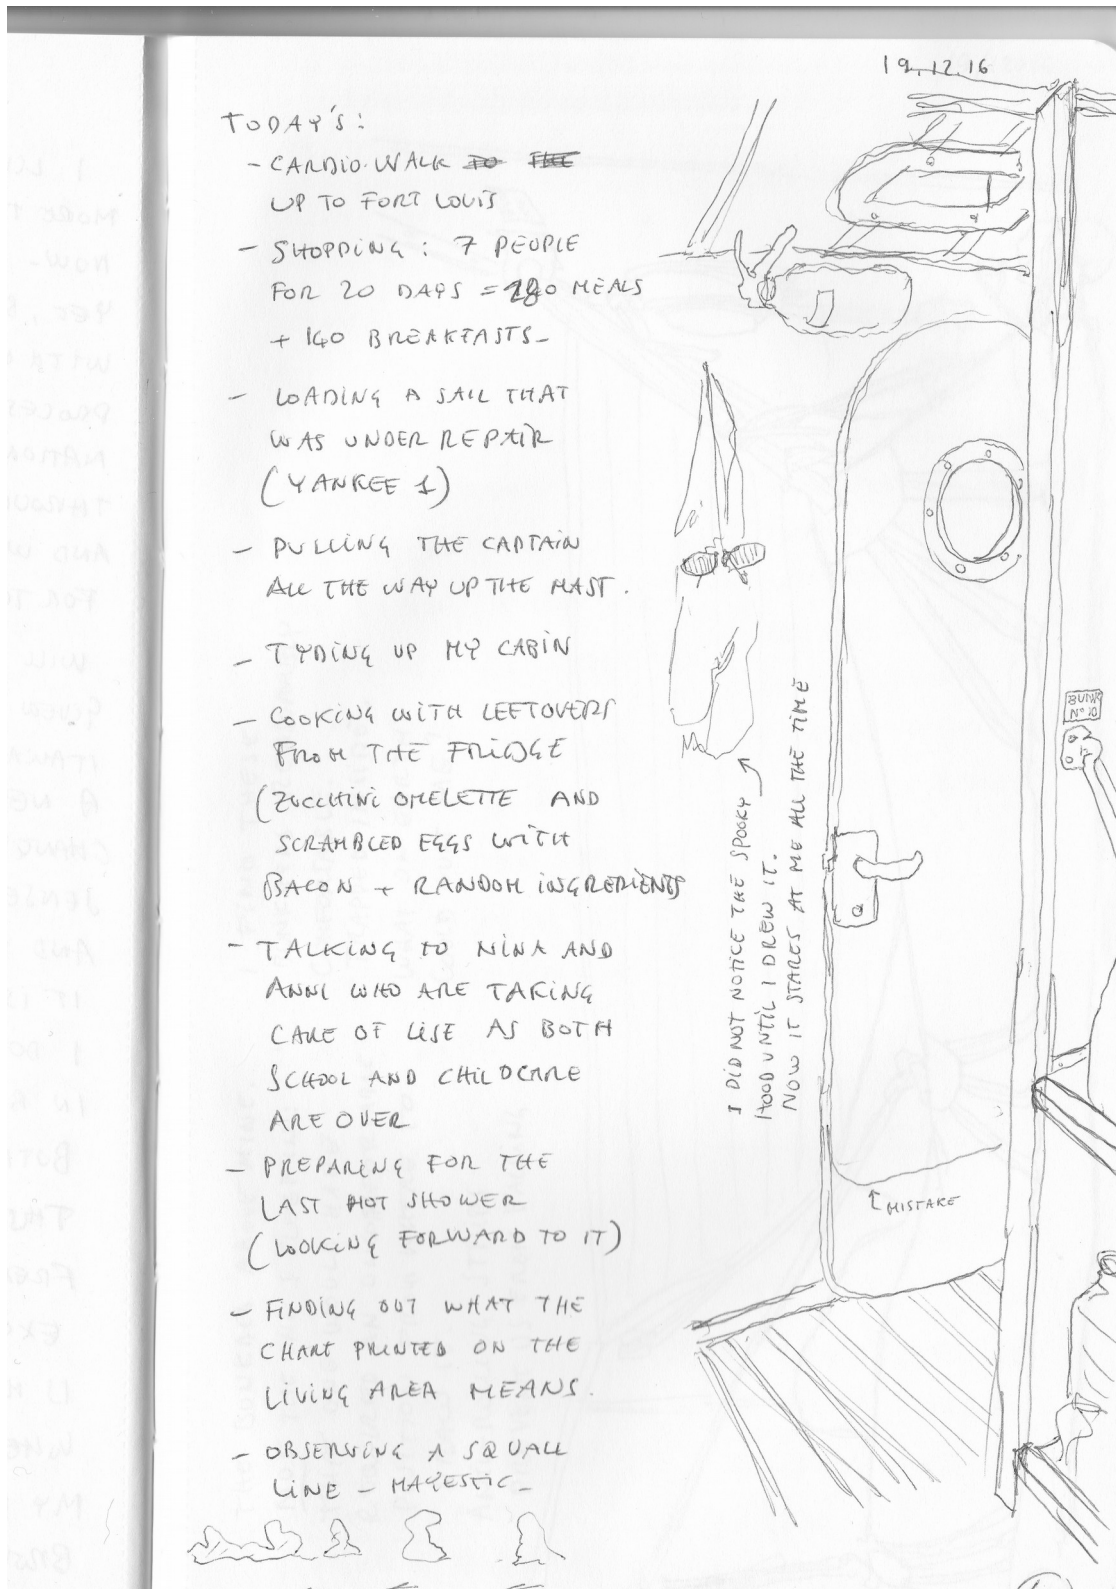 19.12.16
TODAY'S:
- CARDIO-WALK TO THE
UP TO FORT LOUIS
- SHOPPING: 7 PEOPLE
FOR 20 DAYS = 280 MEALS
+ 140 BREAKFASTS-
- LOADING A SAIL THAT
WAS UNDER REPAIR
(YANKEE 1)
- PULLING THE CAPTAIN
ALL THE WAY UP THE MAST.
- TYDING UP MY CABIN
- COOKING WITH LEFTOVERS
FROM THE FRIDGE
(ZUCCHINI OMELETTE AND
SCRAMBLED EGGS WITH
BACON + RANDOM INGREDIENTS
- TALKING TO NINA AND
ANNI WHO ARE TAKING
CARE OF LISE AS BOTH
SCHOOL AND CHILDCARE
ARE OVER
- PREPARING FOR THE
LAST HOT SHOWER
(LOOKING FORWARD TO IT)
- FINDING OUT WHAT THE
CHART PRINTED ON THE
LIVING AREA MEANS.
- OBSERVING A SQUALL
LINE - MAYESTIC-
I DID NOT NOTICE THE SPOOKY
HOOD UNTIL I DREW IT.
NOW IT STARES AT ME ALL THE TIME
MISTAKE